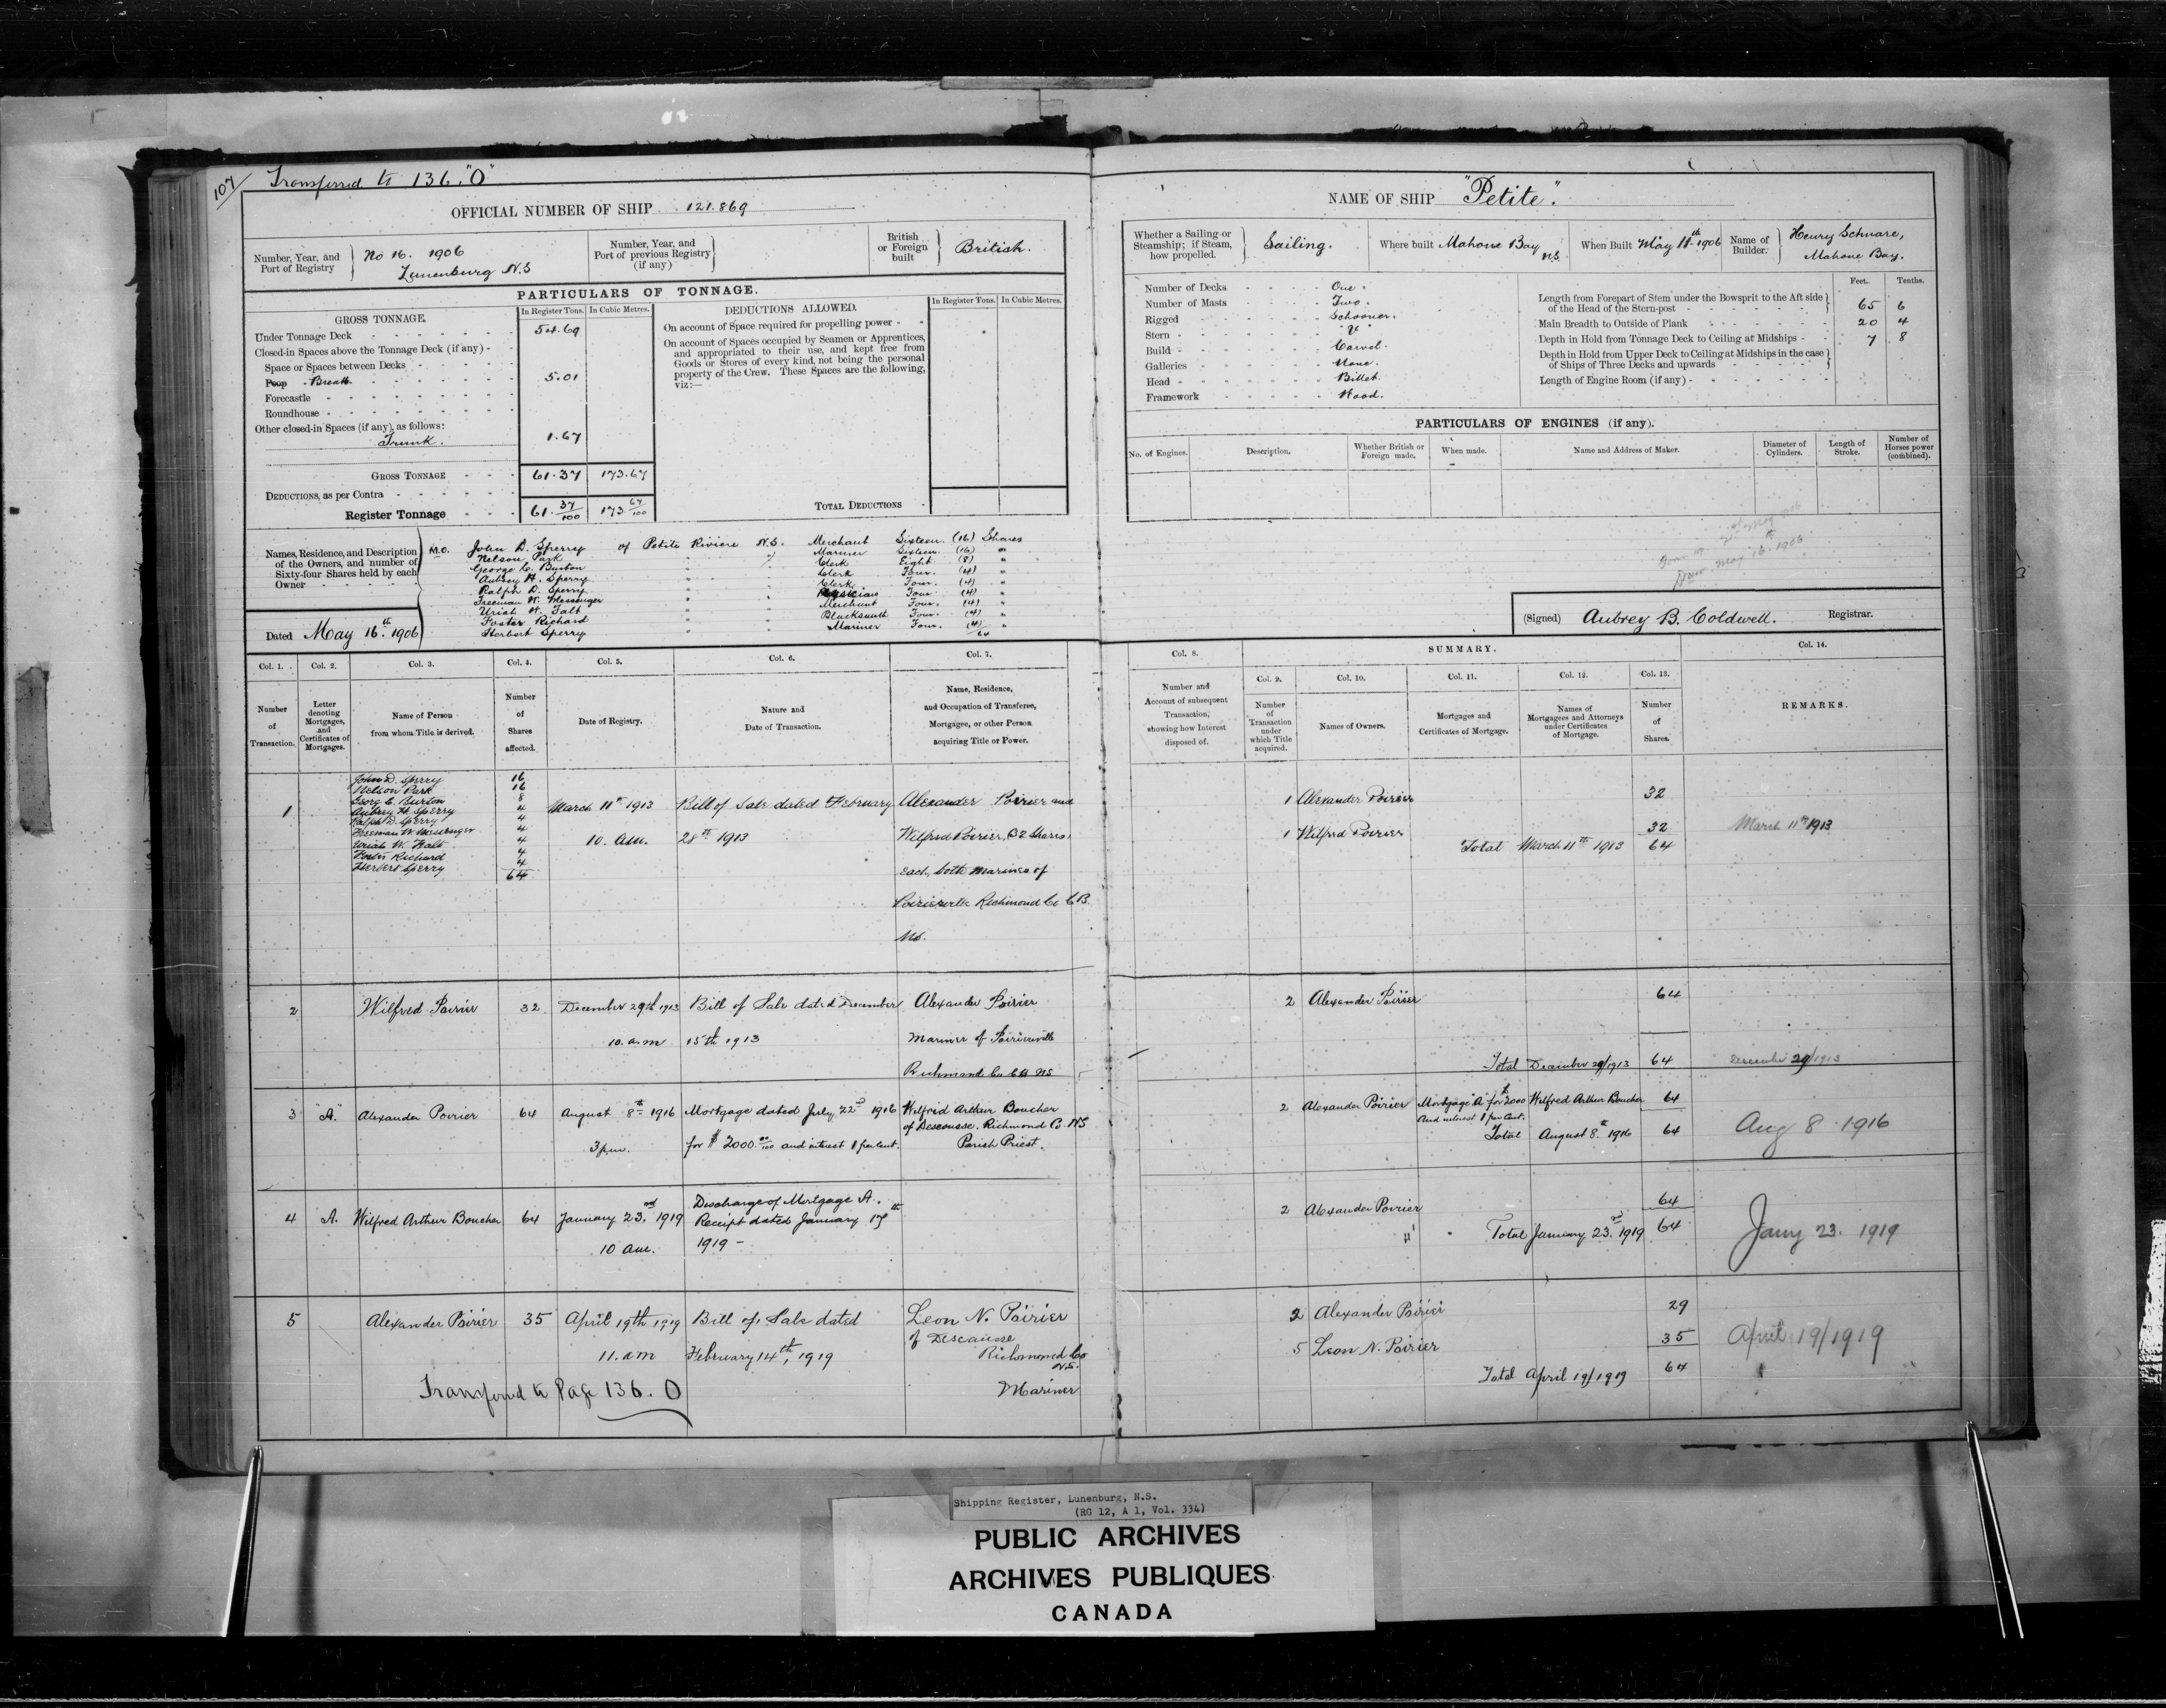 107
Transferred to 136."O"
OFFICIAL NUMBER OF SHIP 121.869
Number, Year, and Port of Registry } No 16. 1906
Lunenburg N.S
Number, Year, and Port of previous Registry (if any) }
British or Foreign built } British.
PARTICULARS OF TONNAGE.
GROSS TONNAGE.
In Register Tons. In Cubic Metres.
Under Tonnage Deck 54.69
Closed-in Spaces above the Tonnage Deck (if any) -
Space or Spaces between Decks
Poop Break 5.01
Forecastle
Roundhouse
Other closed-in Spaces (if any), as follows:
Trunk. 1.67
GROSS TONNAGE 61.37 173.67
DEDUCTIONS, as per Contra
Register Tonnage 61. 37/100 173 67/100
DEDUCTIONS ALLOWED.
In Register Tons. In Cubic Metres.
On account of Space required for propelling power
On account of Spaces occupied by Seamen or Apprentices,
and appropriated to their use, and kept free from
Goods or Stores of every kind, not being the personal
property of the Crew. These Spaces are the following,
viz:—
TOTAL DEDUCTIONS
Names, Residence, and Description
of the Owners, and number of
Sixty-four Shares held by each
Owner
M.O. John D. Sperry of Petite Riviere N.S. Merchant Sixteen (16) Shares
Nelson Park " " Mariner Sixteen (16) "
George C. Burton " Clerk Eight (8) "
Aubrey H. Sperry " Clerk Four. (4) "
Ralph D. Sperry " Clerk Four. (4) "
Freeman W. Messenger " Physician Four (4) "
Uriah W. Falt " Merchant Four. (4) "
Foster Richard " Blacksmith Four. (4) "
Herbert Sperry " Mariner Four. (4) "
64
Dated May 16.th 1906
NAME OF SHIP "Petite".
Whether a Sailing or Steamship; if Steam, how propelled. } Sailing.
Where built Mahone Bay N.S.
When Built May 11th 1906
Name of Builder. } Henry Schnare,
Mahone Bay.
Number of Decks One.
Number of Masts Two.
Rigged Schooner.
Stern
Build Carvel.
Galleries None.
Head Billet.
Framework Wood.
Feet. Tenths.
Length from Forepart of Stem under the Bowsprit to the Aft side of the Head of the Stern-post 65 6
Main Breadth to Outside of Plank 20 4
Depth in Hold from Tonnage Deck to Ceiling at Midships 7 8
Depth in Hold from Upper Deck to Ceiling at Midships in the case of Ships of Three Decks and upwards
Length of Engine Room (if any)
PARTICULARS OF ENGINES (if any).
No. of Engines. Description. Whether British or Foreign made. When made. Name and Address of Maker. Diameter of Cylinders. Length of Stroke. Number of Horses power (combined).
May 16th 1906
(Signed) Aubrey B. Coldwell. Registrar.
Col. 1. Col. 2. Col. 3. Col. 4. Col. 5. Col. 6. Col. 7.
Number of Transaction.
Letter denoting Mortgages, and Certificates of Mortgages.
Name of Person from whom Title is derived.
Number of Shares affected.
Date of Registry.
Nature and Date of Transaction.
Name, Residence, and Occupation of Transferee, Mortgagee, or other Person acquiring Title or Power.
Col. 8. SUMMARY. Col. 14.
Col. 9. Col. 10. Col. 11. Col. 12. Col. 13.
Number and Account of subsequent Transaction, showing how Interest disposed of.
Number of Transaction under which Title acquired.
Names of Owners.
Mortgages and Certificates of Mortgage.
Names of Mortgagees and Attorneys under Certificates of Mortgage.
Number of Shares.
REMARKS.
1
John D. Sperry 16
Nelson Park 16
Georg C. Burton 8
Aubrey H. Sperry 4
Ralph D. Sperry 4
Freeman W. Messenger 4
Uriah W. Falt 4
Foster Richard 4
Herbert Sperry 4
64
March 11th 1913
10. A.M.
Bill of Sale dated February
28th 1913
Alexander Poirier and
Wilfred Poirier, (32 Shares)
each, both Mariners of
Poirierville Richmond Co C.B.
N.S.
1 Alexander Poirier 32
1 Wilfred Poirier 32
Total March 11th 1913 64
March 11th 1913
2 Wilfred Poirier 32 December 29th 1913
10. a.m
Bill of Sale dated December
15th 1913
Alexander Poirier
Mariner of Poirierville
Richmond Co C.B. N.S
2 Alexander Poirier 64
Total December 29/1913 64
December 29/1913
3 "A." Alexander Poirier 64 August 8th 1916
3 p.m.
Mortgage dated July 22nd 1916
for $2000 00/100 and interest 8 per cent.
Wilfrid Arthur Boucher
of Descousse. Richmond Co. N.S
Parish Priest.
2 Alexander Poirier Mortgage "A" for $2000 Wilfred Arthur Boucher 64
And interest 8 per Cent.
Total August 8th 1916 64
Aug 8 1916
4 A. Wilfred Arthur Boucher 64 January 23.rd 1919
10 a.m.
Discharge of Mortgage A.
Receipt dated January 17th
1919 –
2 Alexander Poirier 64
Total January 23.rd 1919 64
Jany 23. 1919
5 Alexander Poirier 35 April 19th 1919
11. a.m
Bill of Sale dated
February 14th, 1919
Leon N. Poirier
of Descousse
Richmond Co
N.S.
Mariner
2 Alexander Poirier 29
5 Leon N. Poirier 35
Total April 19/1919 64
April 19/1919
Transferred to Page 136. O
Shipping Register, Lunenburg, N.S.
(RG 12, A 1, Vol. 334)
PUBLIC ARCHIVES
ARCHIVES PUBLIQUES
CANADA